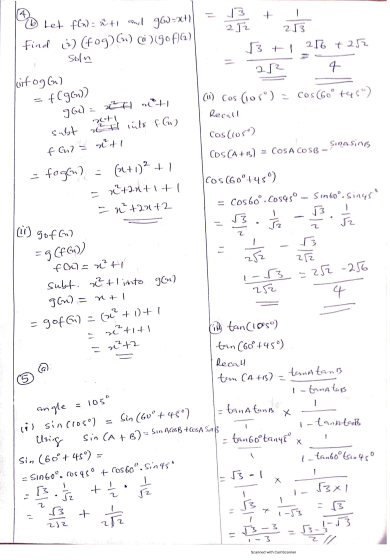 ④ (b) Let f(x) = x²+1 and g(x) = x+1
Find (i) (fog)(x) (ii) (gof)(x)
Soln
(i) fog(x)
= f(g(x))
g(x) =
x+1
subt into f(x)
f(x) = x²+1
= fog(x) = (x+1)² + 1
= x²+2x+1+1
= x²+2x+2
(ii) gof(x)
= g(f(x))
f(x) = x²+1
Subt. x²+1 into g(x)
g(x) = x+1
= gof(x) = (x²+1)+1
= x²+1+1
= x²+2
⑤ (a)
angle = 105°
(i) sin(105°) = sin(60°+45°)
Using Sin(A+B) = sinAcosB + cosA sinB
Sin(60°+45°) =
= Sin60°.cos45° + cos60°.sin45°
= √3/2 . 1/√2 + 1/2 . 1/√2
= √3/2√2 + 1/2√2
= √3/2√2 + 1/2√3
= √3+1/2√2 = 2√6+2√2/4
(ii) cos(105°) = cos(60°+45°)
Recall
cos(105°)
cos(A+B) = cosAcosB − sinAsinB
cos(60°+45°)
= cos60°.cos45° − sin60°.sin45°
= √3/2 . 1/√2 − √3/2 . 1/√2
= 1/2√2 − √3/2√2
1−√3/2√2 = 2√2−2√6/4
(iii) tan(105°)
tan(60°+45°)
Recall
tan(A+B) = tanAtanB/1−tanAtanB
= tanAtanB/1 × 1/1−tanAtanB
= tan60°tan45°/1 × 1/1−tan60°tan45°
= √3−1/1 × 1/1−√3×1
= √3/1 × 1/1−√3 = √3/1−√3
= √3−3/1−3 = √3−3/2
Scanned with CamScanner